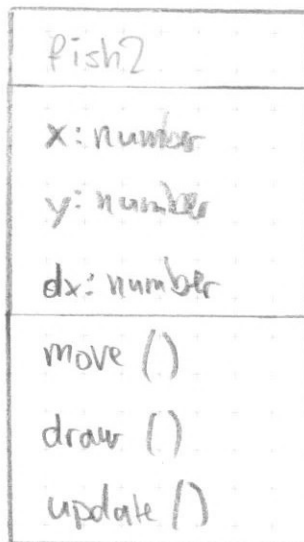 fish2
x: number
y: number
dx: number
move ()
draw ()
update ()